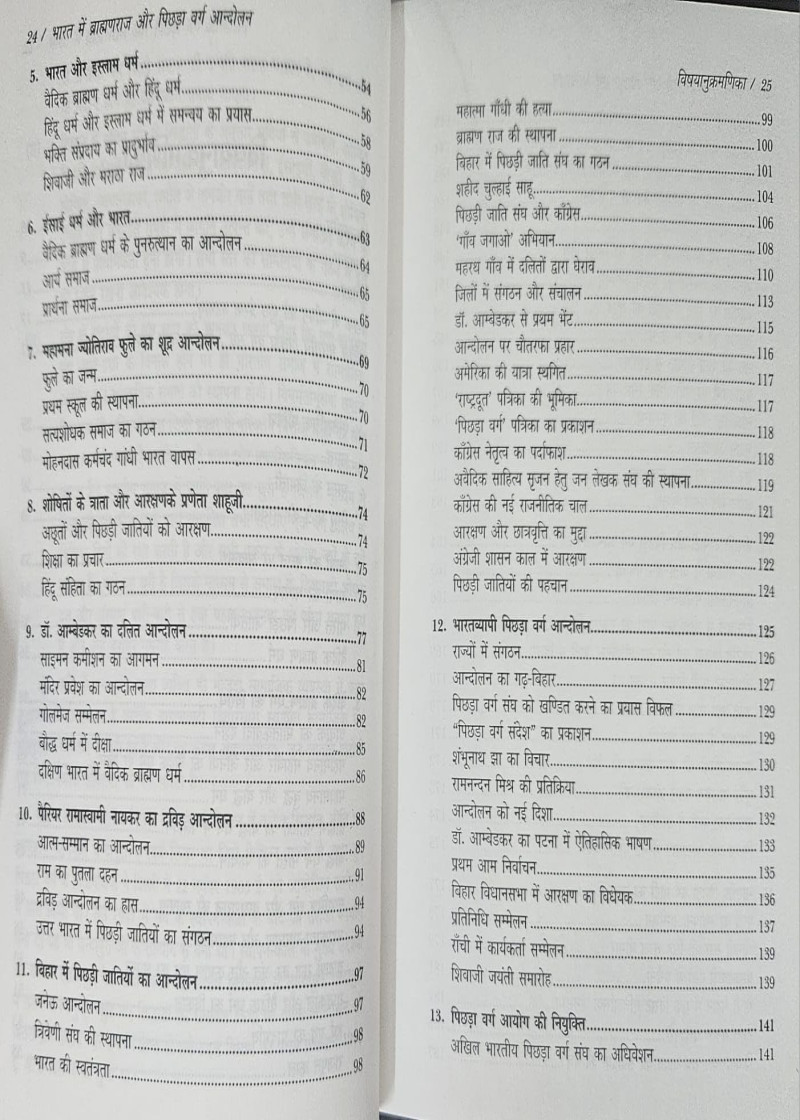 24 / भारत में ब्राह्मणराज और पिछड़ा वर्ग आन्दोलन
5. भारत और इस्लाम धर्म....................54
वैदिक ब्राह्मण धर्म और हिंदू धर्म....................56
हिंदू धर्म और इस्लाम धर्म में समन्वय का प्रयास....................58
भक्ति संप्रदाय का प्रादुर्भाव....................59
शिवाजी और मराठा राज....................62
6. ईसाई धर्म और भारत....................63
वैदिक ब्राह्मण धर्म के पुनरुत्थान का आन्दोलन....................64
आर्य समाज....................65
प्रार्थना समाज....................65
7. महामना ज्योतिराव फुले का शूद्र आन्दोलन....................69
फुले का जन्म....................70
प्रथम स्कूल की स्थापना....................70
सत्यशोधक समाज का गठन....................71
मोहनदास कर्मचंद गांधी भारत वापस....................72
8. शोषितों के त्राता और आरक्षणके प्रणेता शाहूजी....................74
अछूतों और पिछड़ी जातियों को आरक्षण....................74
शिक्षा का प्रचार....................75
हिंदू संहिता का गठन....................75
9. डॉ. आम्बेडकर का दलित आन्दोलन....................77
साइमन कमीशन का आगमन....................81
मंदिर प्रवेश का आन्दोलन....................82
गोलमेज सम्मेलन....................82
बौद्ध धर्म में दीक्षा....................85
दक्षिण भारत में वैदिक ब्राह्मण धर्म....................86
10. पैरियर रामास्वामी नायकर का द्रविड़ आन्दोलन....................88
आत्म-सम्मान का आन्दोलन....................89
राम का पुतला दहन....................91
द्रविड़ आन्दोलन का ह्रास....................94
उत्तर भारत में पिछड़ी जातियों का संगठन....................94
11. बिहार में पिछड़ी जातियों का आन्दोलन....................97
जनेऊ आन्दोलन....................97
त्रिवेणी संघ की स्थापना....................98
भारत की स्वतंत्रता....................98
विषयानुक्रमणिका / 25
महात्मा गाँधी की हत्या....................99
ब्राह्मण राज की स्थापना....................100
बिहार में पिछड़ी जाति संघ का गठन....................101
शहीद चुल्हाई साहू....................104
पिछड़ी जाति संघ और काँग्रेस....................106
'गाँव जगाओ' अभियान....................108
महरथ गाँव में दलितों द्वारा घेराव....................110
जिलों में संगठन और संचालन....................113
डॉ. आम्बेडकर से प्रथम भेंट....................115
आन्दोलन पर चौतरफा प्रहार....................116
अमेरिका की यात्रा स्थगित....................117
'राष्ट्रदूत' पत्रिका की भूमिका....................117
'पिछड़ा वर्ग' पत्रिका का प्रकाशन....................118
काँग्रेस नेतृत्व का पर्दाफाश....................118
अवैदिक साहित्य सृजन हेतु जन लेखक संघ की स्थापना....................119
काँग्रेस की नई राजनीतिक चाल....................121
आरक्षण और छात्रवृत्ति का मुद्दा....................122
अंग्रेजी शासन काल में आरक्षण....................122
पिछड़ी जातियों की पहचान....................124
12. भारतव्यापी पिछड़ा वर्ग आन्दोलन....................125
राज्यों में संगठन....................126
आन्दोलन का गढ़-बिहार....................127
पिछड़ा वर्ग संघ को खण्डित करने का प्रयास विफल....................129
"पिछड़ा वर्ग संदेश" का प्रकाशन....................129
शंभूनाथ झा का विचार....................130
रामनन्दन मिश्र की प्रतिक्रिया....................131
आन्दोलन को नई दिशा....................132
डॉ. आम्बेडकर का पटना में ऐतिहासिक भाषण....................133
प्रथम आम निर्वाचन....................135
बिहार विधानसभा में आरक्षण का विधेयक....................136
प्रतिनिधि सम्मेलन....................137
राँची में कार्यकर्ता सम्मेलन....................139
शिवाजी जयंती समारोह....................139
13. पिछड़ा वर्ग आयोग की नियुक्ति....................141
अखिल भारतीय पिछड़ा वर्ग संघ का अधिवेशन....................141